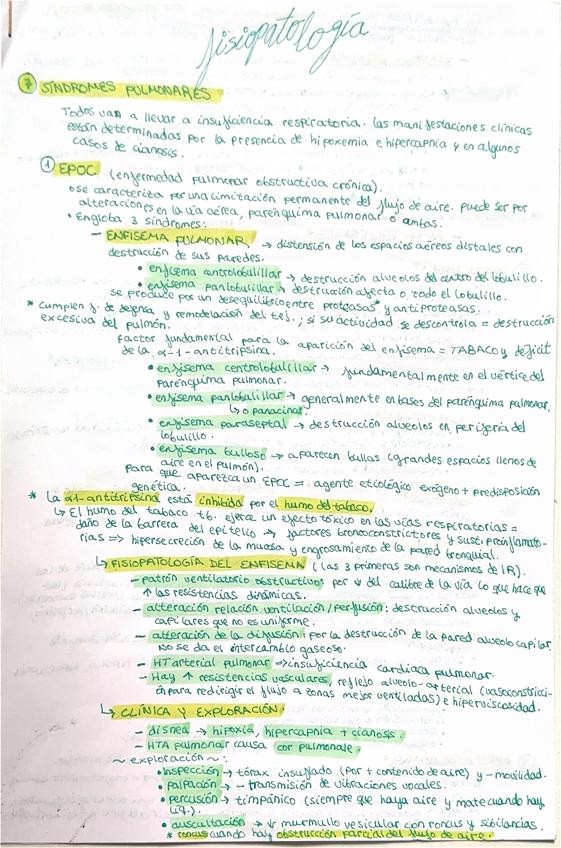 fisiopatología
7 SÍNDROMES PULMONARES
Todos van a llevar a insuficiencia respiratoria. Las manifestaciones clínicas
están determinadas por la presencia de hipoxemia e hipercapnia y en algunos
casos de cianosis.
1 EPOC (enfermedad pulmonar obstructiva crónica).
• se caracteriza por una limitación permanente del flujo de aire. puede ser por
alteraciones en la vía aérea, parénquima pulmonar o ambas.
• Engloba 3 síndromes:
- ENFISEMA PULMONAR → distensión de los espacios aéreos distales con
destrucción de sus paredes.
• enfisema centrolobulillar → destrucción alveolos del centro del lobulillo.
• enfisema panlobulillar → destrucción afecta a todo el lobulillo.
se produce por un desequilibrio entre proteasas* y antiproteasas.
* cumplen f. de defensa y remodelación del tej.; si su actividad se descontrola = destrucción
excesiva del pulmón.
Factor fundamental para la aparición del enfisema = TABACO y déficit
de la α-1-antitripsina.
• enfisema centrolobulillar → fundamentalmente en el vértice del
parénquima pulmonar.
• enfisema panlobulillar → generalmente en bases del parénquima pulmonar.
↳ o panacinar.
• enfisema paraseptal → destrucción alveolos en periferia del
lobulillo.
• enfisema bulloso → aparecen bullas (grandes espacios llenos de
aire en el pulmón).
para que aparezca un EPOC = agente etiológico exógeno + predisposición
genética.
* La α1-antitripsina está inhibida por el humo del tabaco.
↳ El humo del tabaco tb. ejerce un efecto tóxico en las vías respiratorias =
daño de la barrera del epitelio → factores broncoconstrictores y sust. proinflamato-
rias => hipersecreción de la mucosa y engrosamiento de la pared bronquial.
↳ FISIOPATOLOGÍA DEL ENFISEMA (las 3 primeras son mecanismos de IR).
- patrón ventilatorio obstructivo: por ↓ del calibre de la vía lo que hace que
↑ las resistencias dinámicas.
- alteración relación ventilación/perfusión: destrucción alveolos y
capilares que no es uniforme.
- alteración de la difusión: por la destrucción de la pared alveolo capilar
no se da el intercambio gaseoso.
- HT arterial pulmonar → insuficiencia cardiaca pulmonar.
- Hay ↑ resistencias vasculares, reflejo alveolo-arterial (vasoconstricci-
ón para redirigir el flujo a zonas mejor ventiladas) e hiperviscosidad.
↳ CLÍNICA Y EXPLORACIÓN.
- disnea → hipoxia, hipercapnia + cianosis.
- HTA pulmonar causa cor pulmonale.
~ exploración ~:
• inspección → tórax insuflado (por + contenido de aire) y - movilidad.
• palpación → - transmisión de vibraciones vocales.
• percusión → timpánico (siempre que haya aire y mate cuando hay
líq.).
• auscultación → ↓ murmullo vesicular con roncus y sibilancias.
* roncus cuando hay obstrucción parcial del flujo de aire.